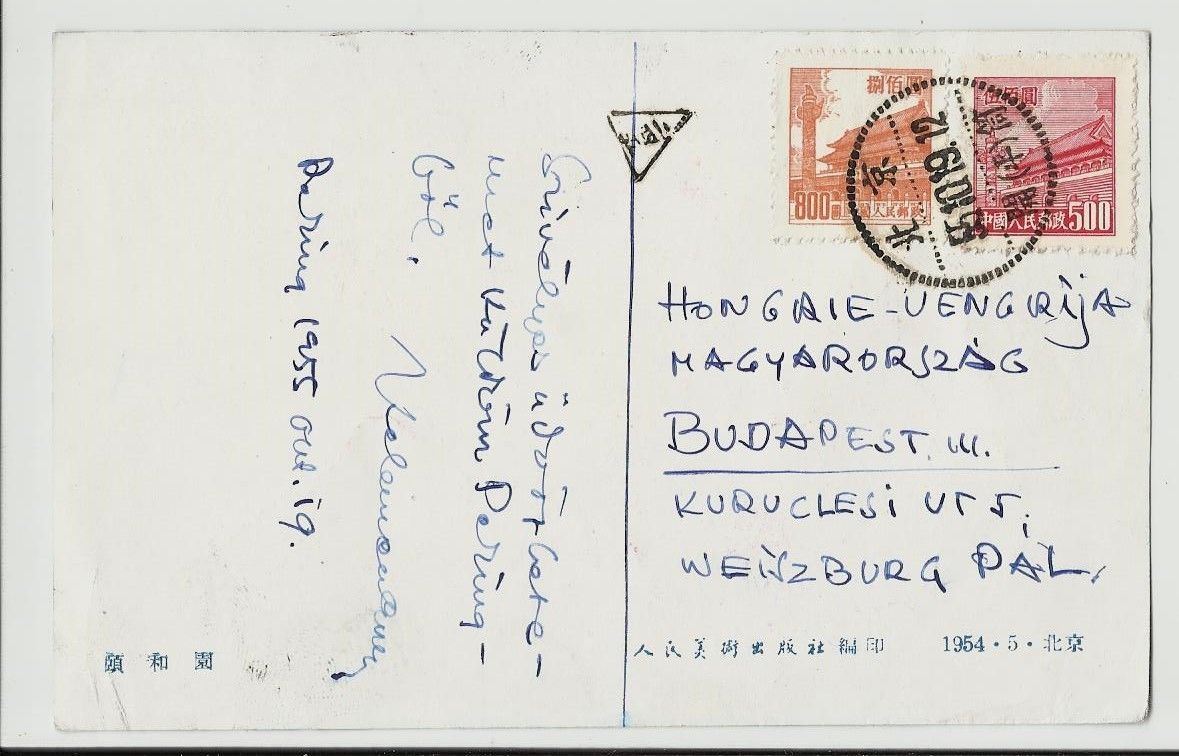 捌佰圓
800
伍佰圓
中國人民郵政 500
北京
55.10.19.12
Szivélyes üdvözlete-
met küldöm Peking-
ből.
Peking 1955 okt. 19.
HONGRIE-VENGRIJA
MAGYARORSZÁG
BUDAPEST. III.
KURUCLESI UT 5,
WEISZBURG PÁL.
頤和園
人民美術出版社編印 1954·5·北京